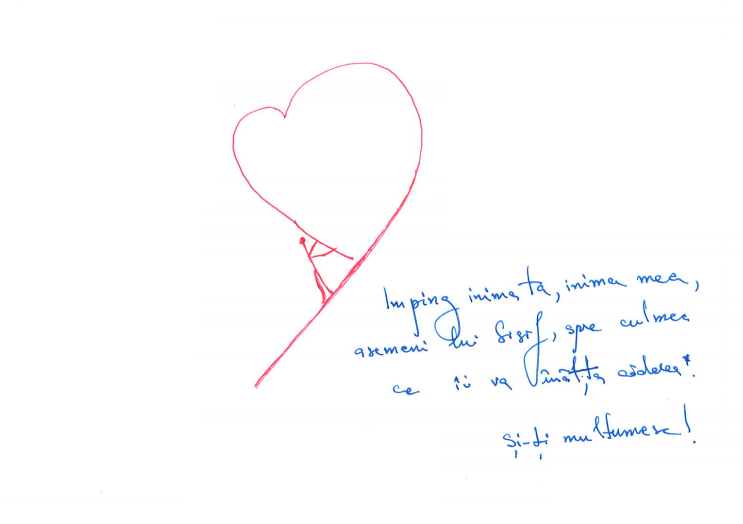 Imping inima ta, inima mea,
asemeni lui Sisif, spre culmea
ce îi va înălța căderea*.
Și-ți mulțumesc!